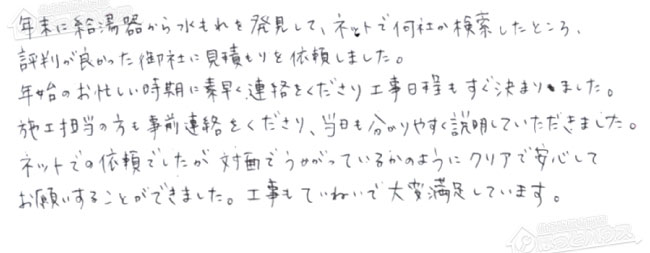 年末に給湯器から水もれを発見して、ネットで何社か検索したところ、
評判が良かった御社に見積もりを依頼しました。
年始のお忙しい時期に素早く連絡をくださり工事日程もすぐ決まりました。
施工担当の方も事前連絡をくださり、当日も分かりやすく説明していただきました。
ネットでの依頼でしたが対面でうかがっているかのようにクリアで安心して
お願いすることができました。工事もていねいで大変満足しています。